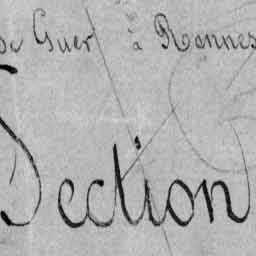 de Guer à Rennes
Section